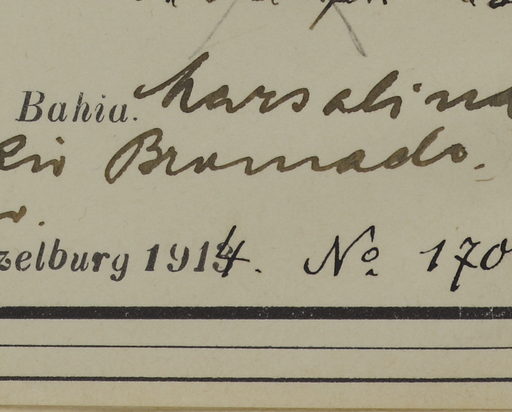 Bahia. Marsalina
Rio Brumado.
zelburg 1914. No 170